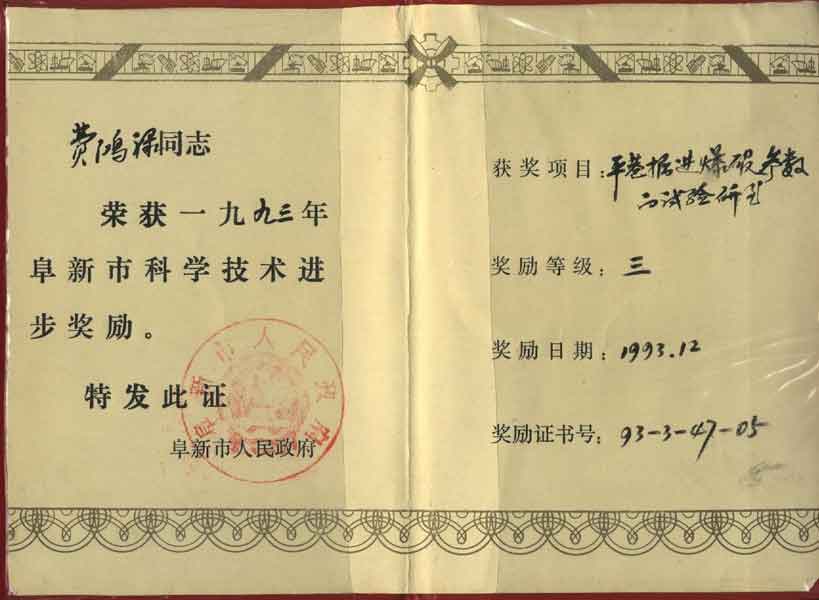 费鸿禄同志
荣获一九九三年
阜新市科学技术进
步奖励。
特发此证
阜新市人民政府
阜新市人民政府
获奖项目：平巷掘进爆破参数
的试验研究
奖励等级：三
奖励日期：1993.12
奖励证书号：93-3-47-05